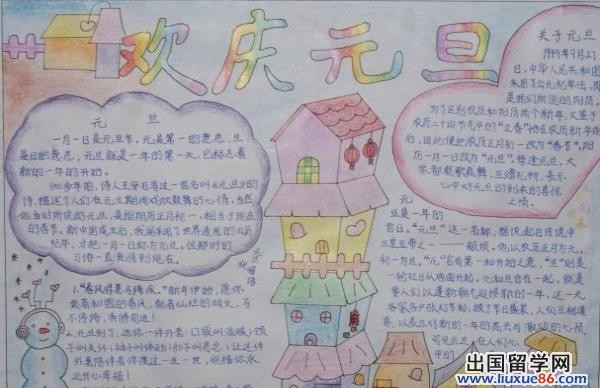 欢庆元旦
元 旦
一月一日是元旦节，元是第一的意思，旦
是日的意思，元旦就是一年的第一天，它标志着
新的一年的开始。
800多年前，诗人王安石写过一首名叫《元旦》的
诗，描述了人们在元旦期间欢欣鼓舞的心情。当然
他当时所说的元旦，是指阴历正月初一，相当于现在
的春节。新中国成立后，我国采用了世界通用的公历
纪年，才把一月一日称为元旦。但那时的
习俗一直流传到现在。
元旦祝福语
1."春风
新年伊始，愿你
乘着和困的春风，朝着灿烂的明天，马
不停蹄，奔腾前进！
2.元旦到了，送你一件外套：口袋叫温暖，领
子叫关怀，袖子叫体贴，扣子叫思念；让这件
外套陪伴着你度过一生一世，祝福你永
远开心幸福！
关于元旦
1949年9月27
日，中华人民共和国
采用了公元纪年法，
是我们所说的阳历，
为了区别农历和阳历两个新年，又鉴于
农历二十四节气中的"立春"恰在农历新年前
后，因此便把农历正月初一改为"春节"，阳
历一月一日改为"元旦"。每逢元旦，
大家都载歌载舞、互赠礼物，表示
心中对元旦的到来的喜悦
之情。
元
旦是一年的
首日，"元旦"这一名称，据说起自传说中
三皇五帝之一——颛顼，他以农历正月为元，
初一为旦。"元"含有第一和开始之意，"旦"则是
一轮红日从地面升起，元和旦合在一起，就是
要人们以蓬勃朝气迎接新的一年，这一天，
各家各户张灯节彩，披了节日盛装，人们互相道
喜，以表达对新的一年的高兴与激动的心情，
可见元旦在人们心
中的
出国留学网
www.liuxue86.com